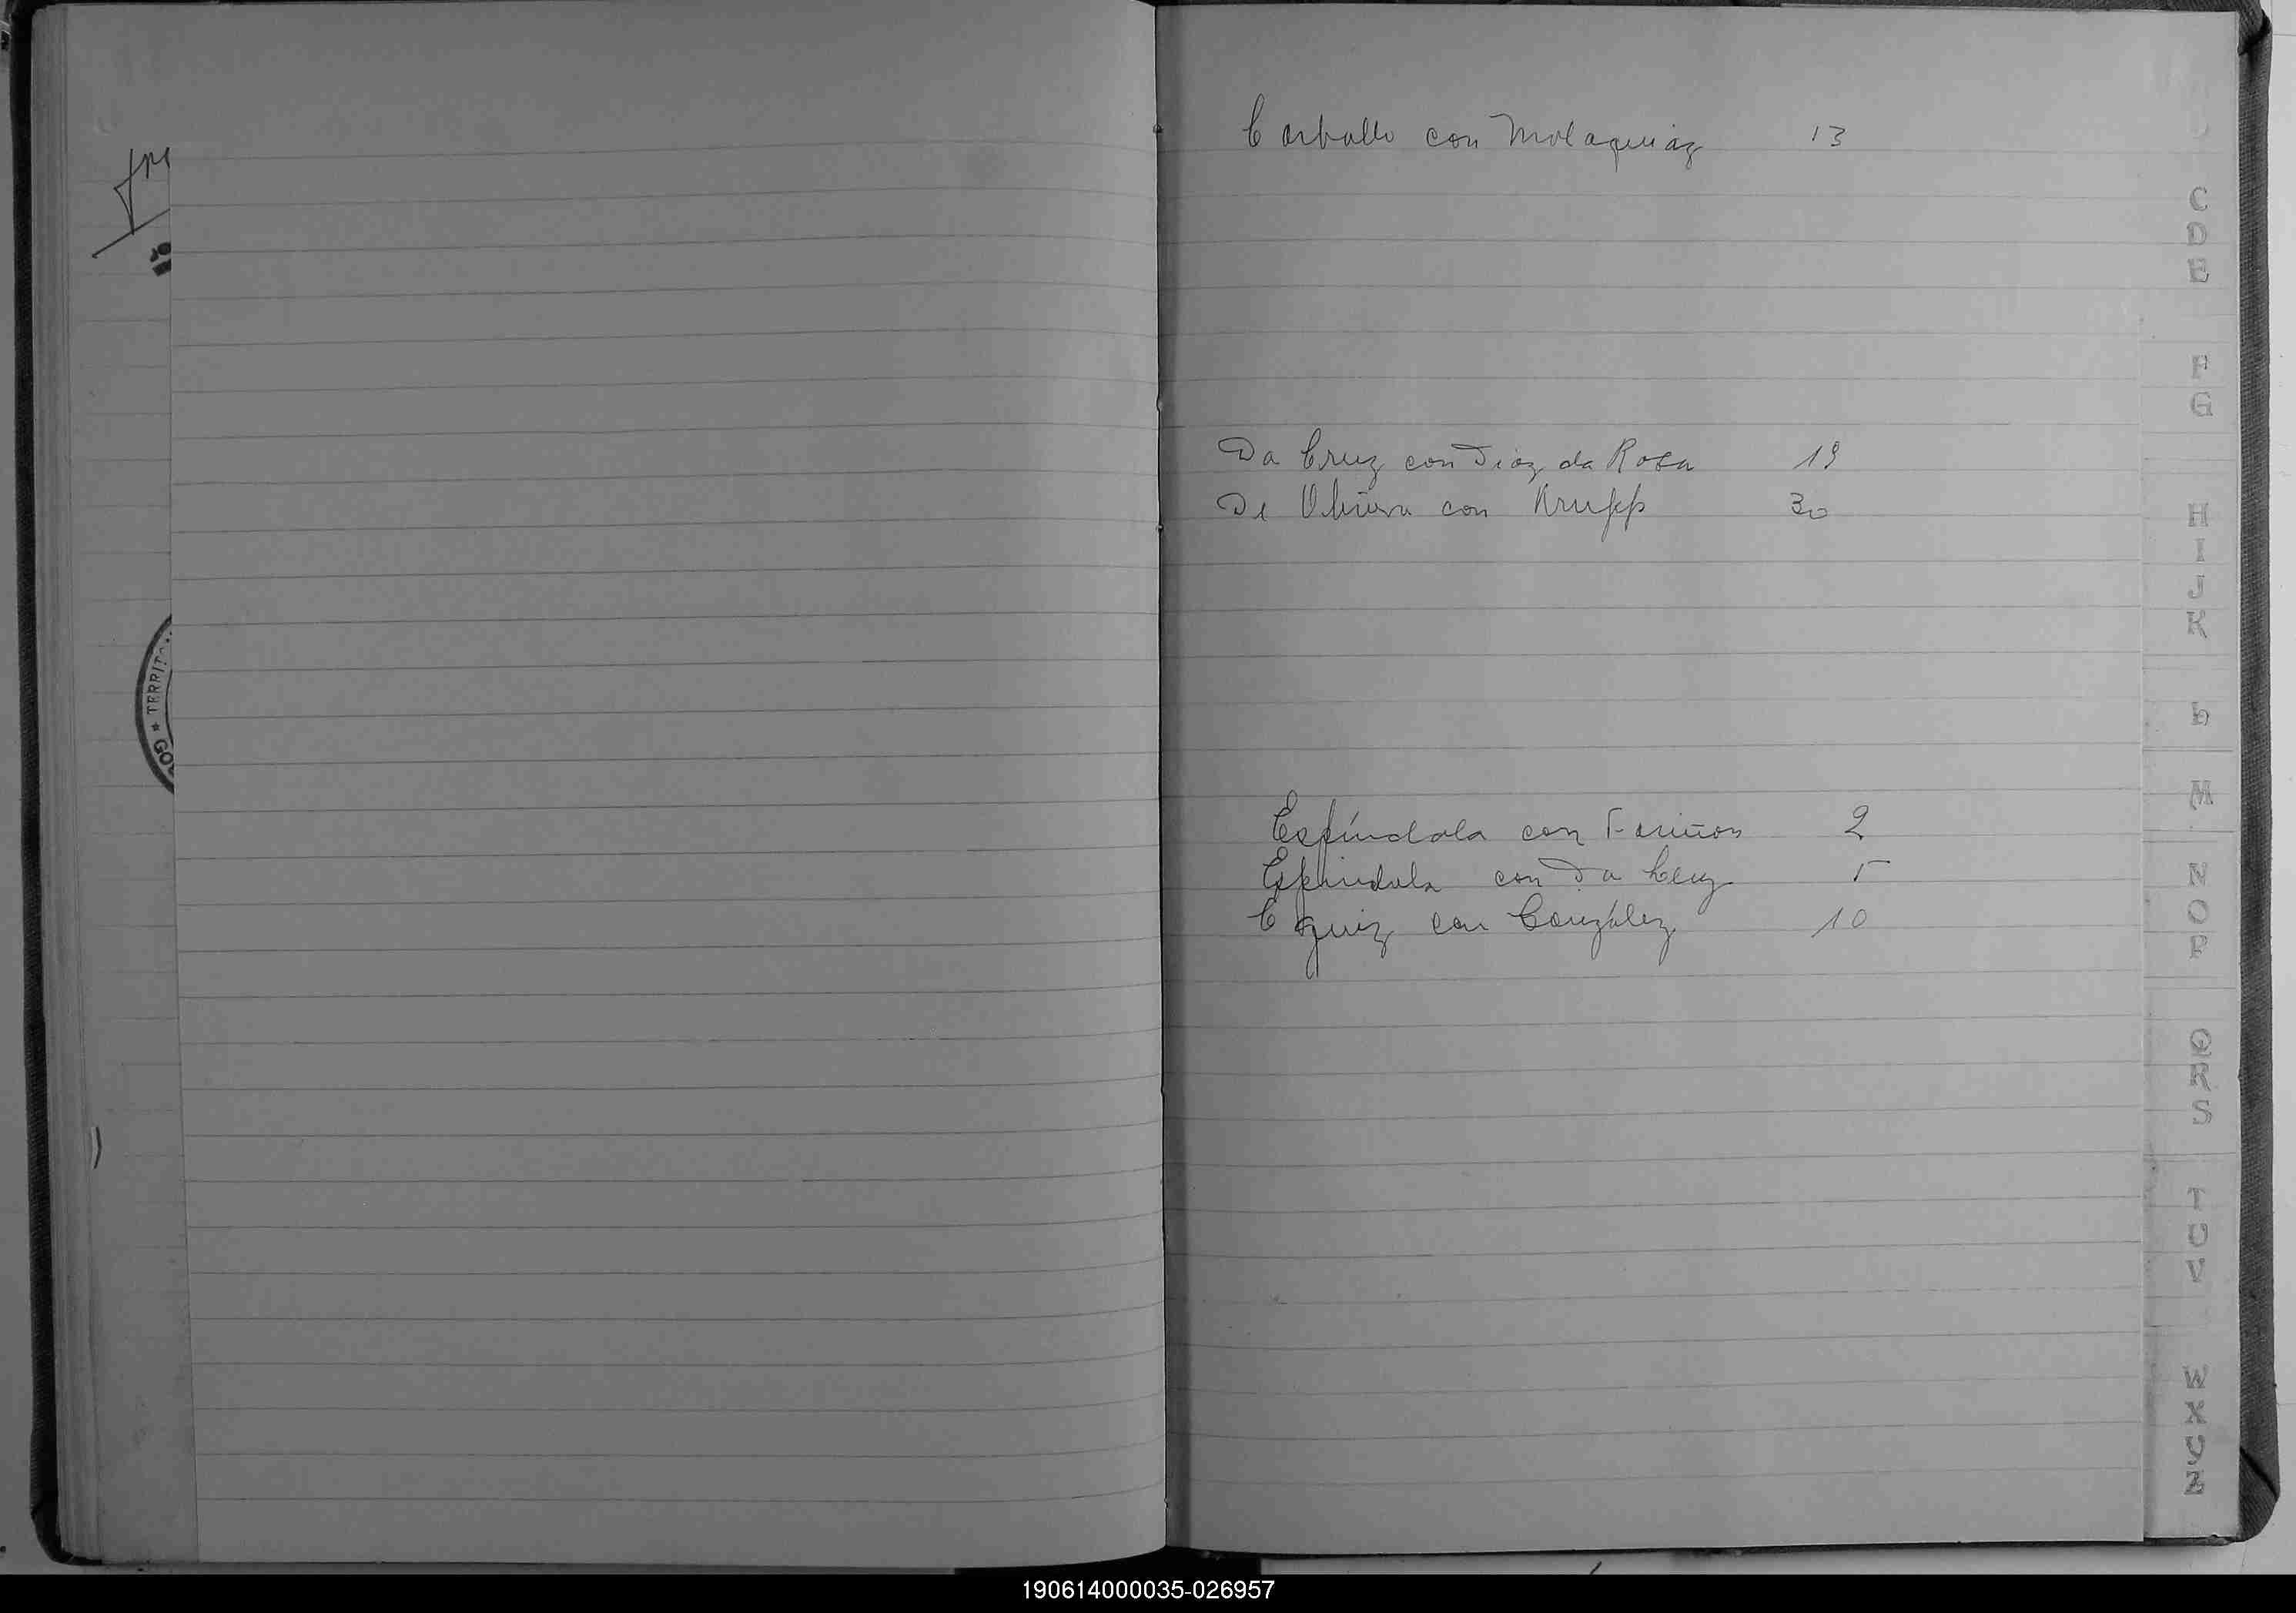 Carballo con Molaquiaz 13
Da Cruz con Diaz da Rosa 19
De Oliviera con Krupp 30
Espíndola con Fariñon 2
Espindola con Da Cruz 5
Eguiz con González 10
TERRIT
GO
C
D
E
F
G
H
I
J
K
L
M
N
O
P
Q
R
S
T
U
V
W
X
Y
Z
190614000035-026957